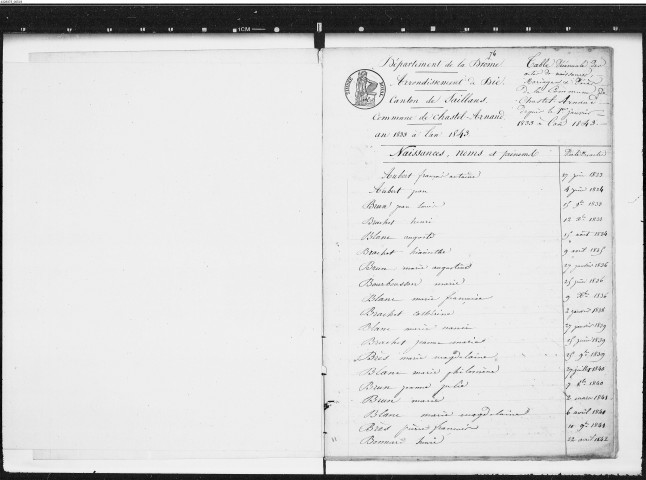 74
Département de la Drome
Arrondissement de Die
Canton de Saillans
Commune de Chastel-Arnaud
an 1833 à l'an 1843
Table Décennale des
actes de naissances
Mariages et Décès
De la Commune de
Chastel Arnaud
Depuis le 1er janvier
1833 à l'an 1843
TIMBRE ROYAL
Naissances, noms et prenoms
Aubert 17 juin 1833
Aubert jean 4 juin 1834
Brun jean louis 15 9bre 1833
Brachet henri 1833
Blanc auguste 15 août 1834
Brachet hiacinthe 9 avril 1835
Brun marie augustine 27 janvier 1836
Bourbousson marie 25 juin 1836
Blanc marie françoise 9 Xbre 1836
Brachet catherine 2 janvier 1838
Blanc marie 27 janvier 1839
Brachet jeanne marie 15 juin 1839
Brès marie magdelaine 15 9bre 1839
Blanc marie philomène 29 juillet 1840
Brun jeanne julie 9 Xbre 1840
Brun marie 2 mars 1841
Blanc marie magdelaine 6 avril 1841
Brès pierre françois 10 9bre 1841
Bonnard henri 22 avril 1842
1CM